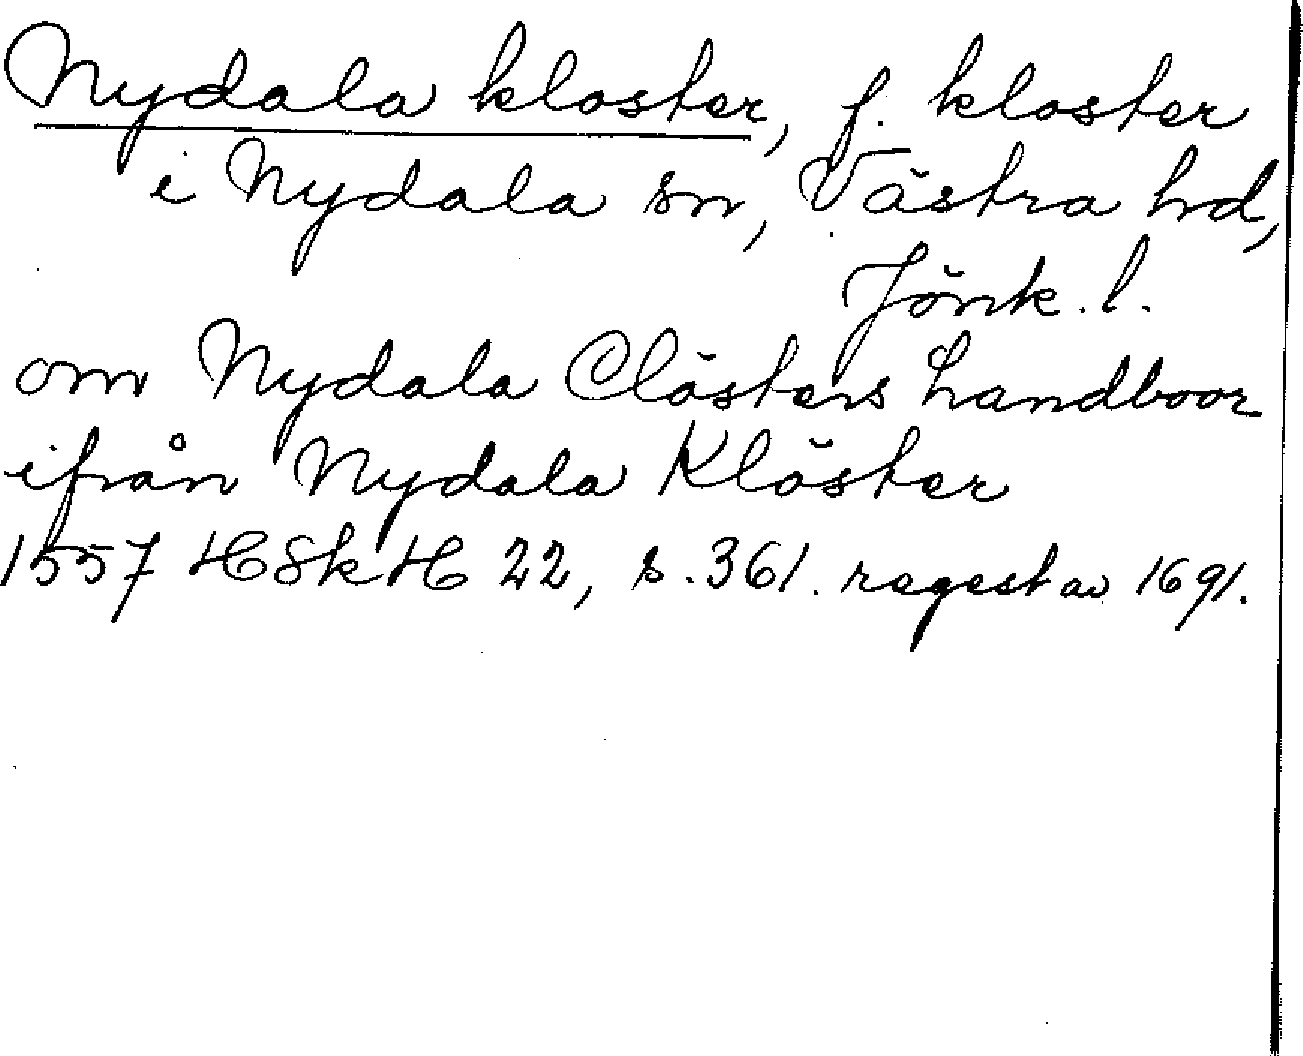 Nydala kloster, f. kloster
i Nydala sn, Västra hd,
Jönk. l.
om Nydala Clösters landboor
ifrån Nydala Klöster
1557 HSkH 22, s. 361. regest av 1691.